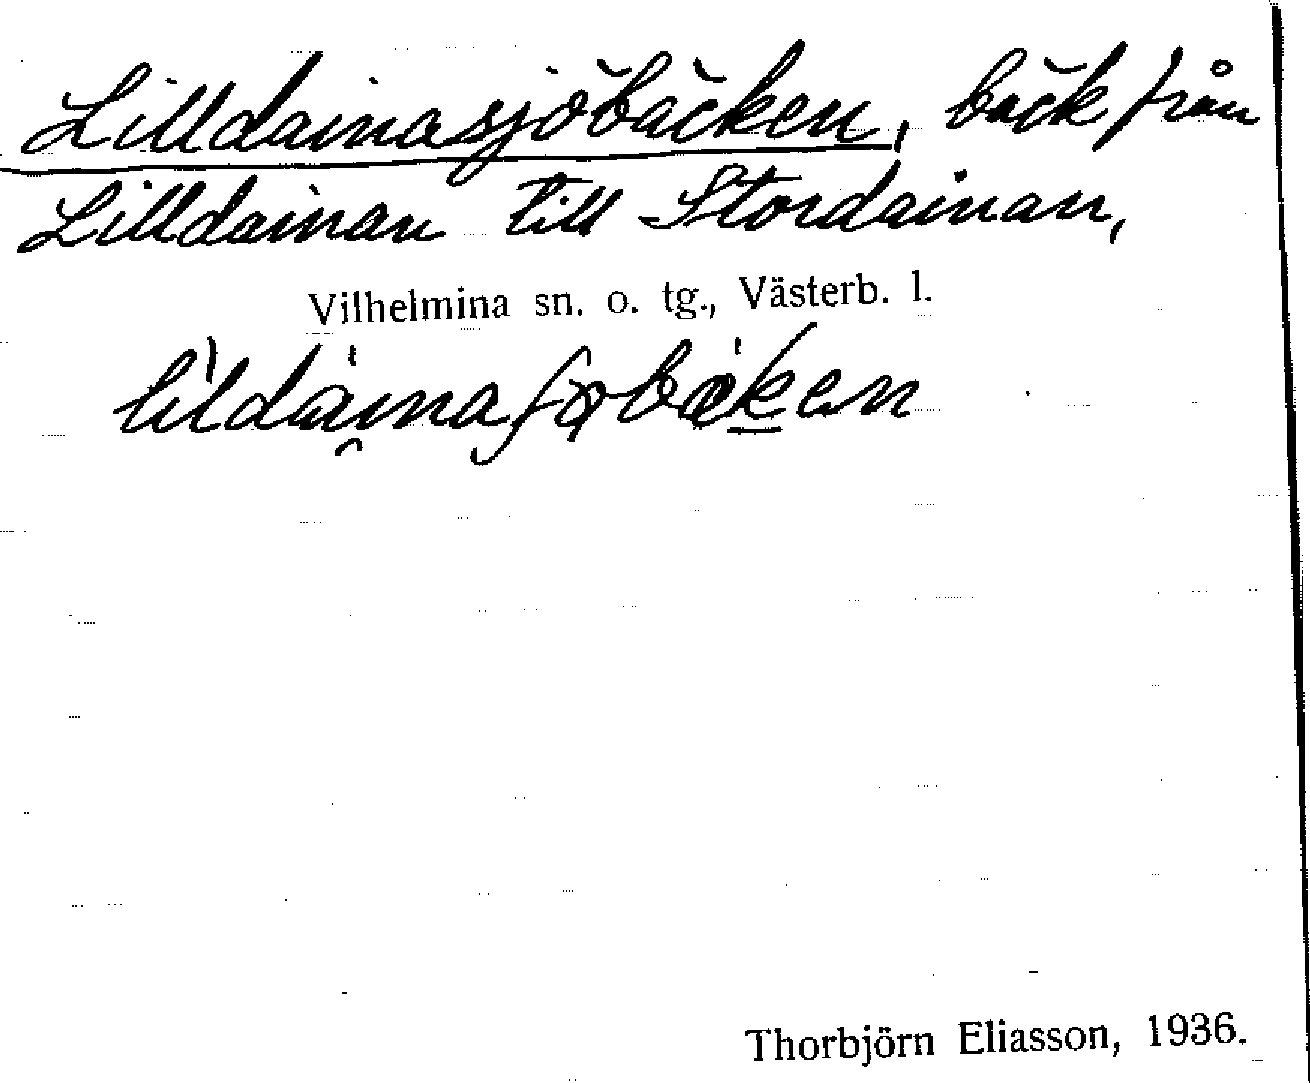 Lilldainasjöbäcken, bäck från
Lilldainan till Stordainan,
Vilhelmina sn. o. tg., Västerb. l.
Thorbjörn Eliasson, 1936.